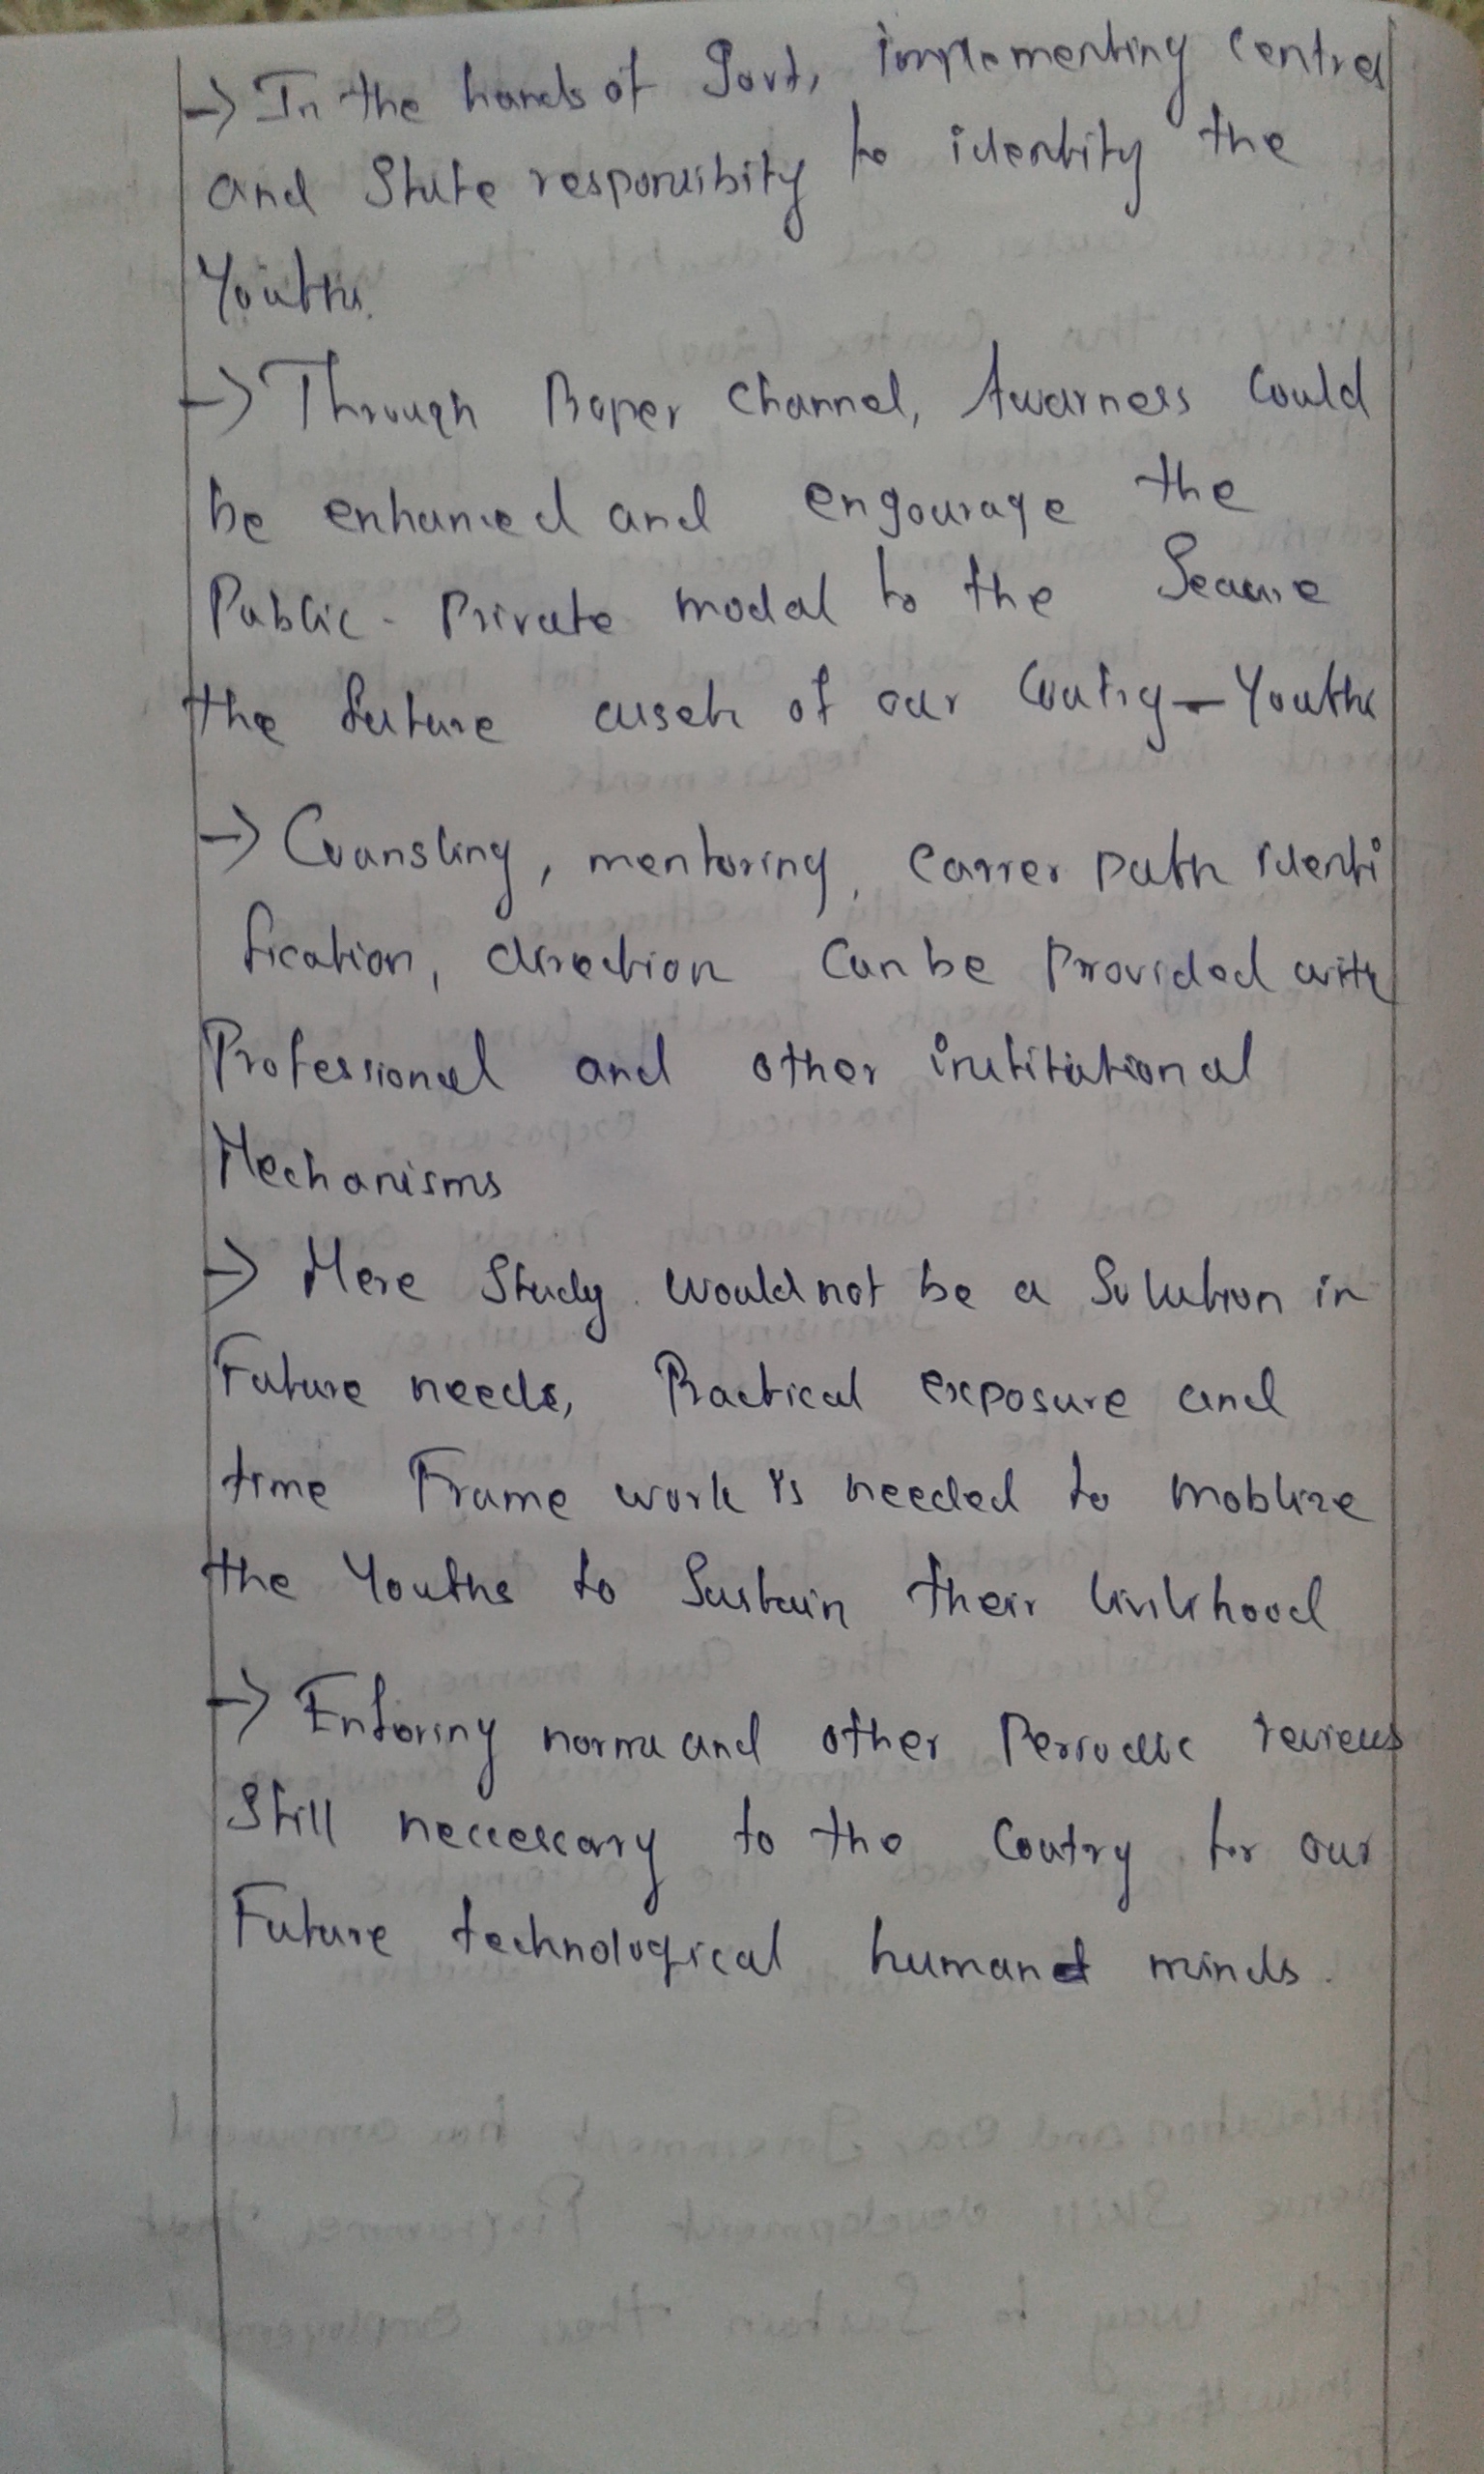 → In the hands of Govt, implementing central
and State responsibity to identity the
Youths.
→ Through Proper Channel, Awarness Could
be enhanced and engourage the
Public - Private modal to the Secure
the future assets of our Coutry - Youths
→ Counsling, mentoring, Carrer Path identi
fication, direction Can be Provided with
Professional and other institutional
Mechanisms
→ Mere Study would not be a Solution in
Future needs, Practical exposure and
time Frame work is needed to moblize
the Youths to Sustain their livlihood
→ Enforing norms and other Periodic reviews
Still neccessary to the Coutry for our
Future technological human minds.